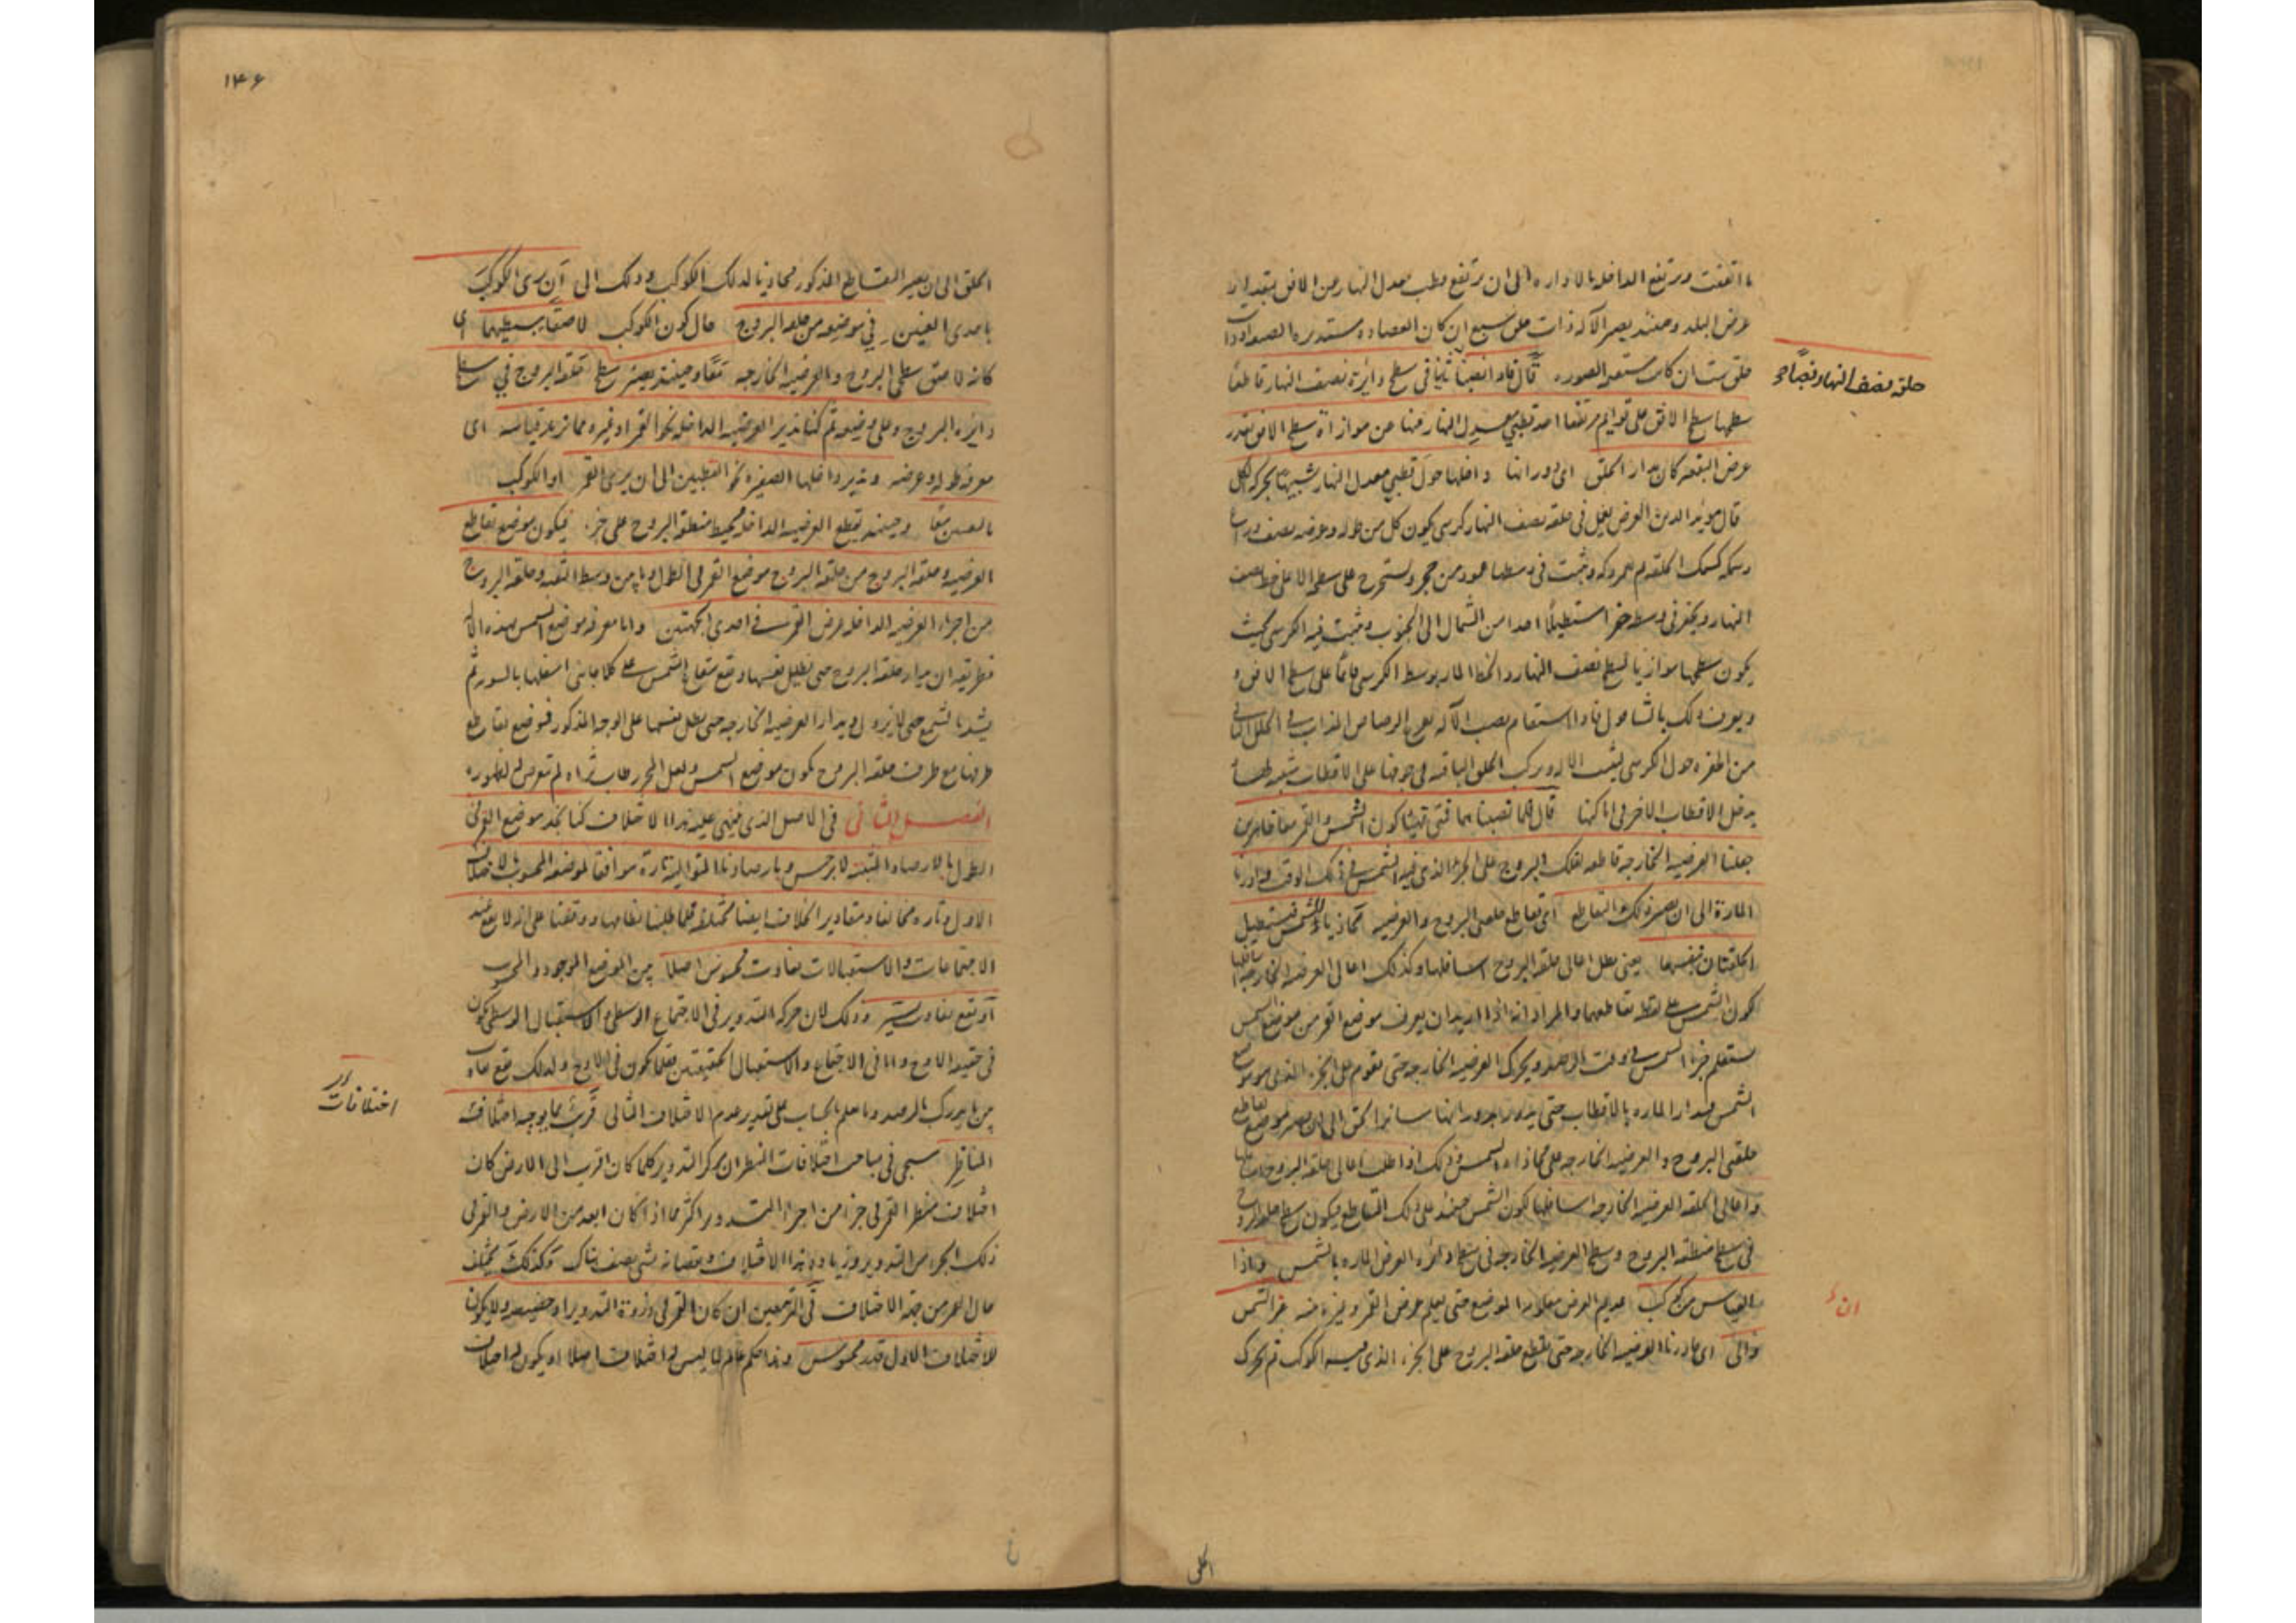 ما اتفقت ويرتفع الداخلة بالادارة الى ان يرتفع قطب معدل النهار من الافق بمقدار
عرض البلد وحينئذ يصير الآلة ذات حلق سبع ان كان العضادة مستديرة الصورة او ذات
حلق ست ان كانت مستقيمة الصورة قال فاذا نصبنا في سطح دائرة نصف النهار قاطعا
حلقة نصف النهار نصبا
سطحها سطح الافق على قوايم مرتفعا احد قطبي معدل النهار منها عن موازاة سطح الافق بقدر
عرض البقعة كان مدار الحلق اى دورانها داخلها حول قطبي معدل النهار شبيها بحركة الكل
قال مويد الدين العرضى يعمل فى حلقة نصف النهار كرسى يكون كل من طوله وعرضه نصف ذراع
وسمكه كسمك الحلقة ثم فى وسطها عمود من حجر ويستخرج على سطحه الاعلى خط نصف
النهار ويحفر فى وسطه حفرا مستطيلا اخذا من الشمال الى الجنوب ويثبت فيه الكرسى بحيث
يكون سطحها موازيا لسطح نصف النهار والخط المار بوسط الكرسى قائما على سطح الافق
ويعرف ذلك بالشاقول فاذا استقام نصب الآلة الرصاص المذاب فى الخلل الباقى
من الحفرة حول الكرسى ليثبت الآلة ويركب الحلق الباقية فى جوفها على الاقطاب
يدخل الاقطاب الاخر فى اماكنها قال فلما نصبناها فمتى تهيأ كون الشمس والقمر معا ظاهرين
جعلنا العرضية الخارجة قاطعة لفلك البروج على الجزء الذى فيه الشمس فى ذلك الوقت وادرنا
المارة الى ان يصير ذلك التقاطع اى تقاطع حلقتى البروج والعرضية محاذيا للشمس فيستظل
الحلقتان بنفسها يعنى يظل اعالى حلقة البروج اسافلها وكذلك اعالى العرضية الخارجة اسافلها
لكون الشمس على نقطة تقاطعهما والمراد انه اذا اريد ان يعرف موضع القمر من موضع الشمس
فيستعلم جزء الشمس فى وقت الرصد ويحرك العرضية الخارجة حتى تقوم على الجزء الذى هو موضع
الشمس فيدار المارة بالاقطاب حتى يدور بدورانها سائر الحلق الى ان يصير موضع تقاطع
حلقتى البروج والعرضية الخارجة على محاذاة الشمس وذلك اذا اظلت اعالى حلقة البروج اسافلها
واعالى الحلقة العرضية الخارجة اسافلها لكون الشمس حينئذ على ذلك التقاطع فيكون سطح حلقة البروج
فى سطح منطقة البروج وسطح العرضية الخارجة فى سطح دائرة العرض المارة بالشمس واذا
القياس من كوكب عديم العرض معلوم الموضع حتى يعلم عرض القمر وغيره منه غير الشمس
ان
والى اى ادرنا العرضية الخارجة حتى تقطع حلقة البروج على الجزء الذى فيه الكوكب ثم نحرك
الحلق
١٤۶
الحلق الى ان يصير التقاطع المذكور محاذيا لذلك الكوكب وذلك الى ان يرى الكوكب
باحدى العينين فى موضعه من حلقة البروج حال كون الكوكب لاصقا ببسيطيهما اى
كانه لاصق بسطحى البروج والعرضية الخارجة معا وحينئذ يصير سطح حلقة البروج فى سطح
دايرة البروج وعلى وضعه ثم كنا ندير العرضية الداخلة نحو القمر او غيره مما نريد قياسه اى
معرفة طوله وعرضه وندير داخلها الصغيرة نحو القطبين الى ان يرى القمر او الكوكب
بالثقبين معا وحينئذ يقطع العرضية الداخلة محيط منطقة البروج على جزء فيكون موضع تقاطع
العرضية وحلقة البروج من حلقة البروج موضع القمر فى الطول وما بين وسط الثقبة وحلقة البروج
من اجزاء العرضية الداخلة عرض القمر فى احدى الجهتين واما معرفة موضع الشمس بهذه الآلة
فطريقه ان يدار حلقة البروج حتى تظلل نفسها ويقع شعاع الشمس على كلا جانبى اسفلها بالسوية ثم
يشد بالشمع حتى لا يزول ويدار العرضية الخارجة حتى يظل نفسها على الوجه المذكور فموضع تقاطع
طرفها مع طرف حلقة البروج يكون موضع الشمس ولعل المحرر طاب ثراه لم يتعرض له لظهوره
الفصل الثانى فى الاصل الذى ينبنى عليه هذا الاختلاف كنا نجد موضع القمر فى
الطول بالارصاد المثبتة لابرخس وبارصادنا المتوالية تارة موافقا لموضعه المحسوب بالاختلاف
الاول وتارة مخالفا ومقادير الخلاف ايضا مختلفة فلما طلبنا نظامها ووقفنا على انه لا يقع عند
الاجتماعات والاستقبالات تفاوت محسوس اصلا بين الموضع الموجود والمحسوب
او يقع تفاوت يسير وذلك لان مركز التدوير فى الاجتماع الوسطى والاستقبال الوسطى يكون
فى حقيقة الاوج واما فى الاجتماع والاستقبال الحقيقيين فقلما يكون فى الاوج ولذلك يقع تفاوت
بين ما يدرك بالرصد وما يعلم بالحساب على تقدير عدم الاختلاف الثانى قريب مما يوجبه اختلاف
اختلافات
المناظر سيجى فى مباحث اختلافات المنظر ان مركز التدوير كلما كان اقرب الى الارض كان
اختلاف منظر القمر فى جزء من اجزاء التدوير اكثر مما اذا كان ابعد من الارض والقمر فى
ذلك الجزء من التدوير وزيادة هذا الاختلاف ونقصانه شئ يصفه هناك وكذلك يختلف
حال القمر من جهة الاختلاف فى التربيعين ان كان القمر فى ذروة التدوير او حضيضه ولا يكون
للاختلاف الاول قدر محسوس وهذا حكم عام لما ليس له اختلاف اصلا او يكون له اختلاف